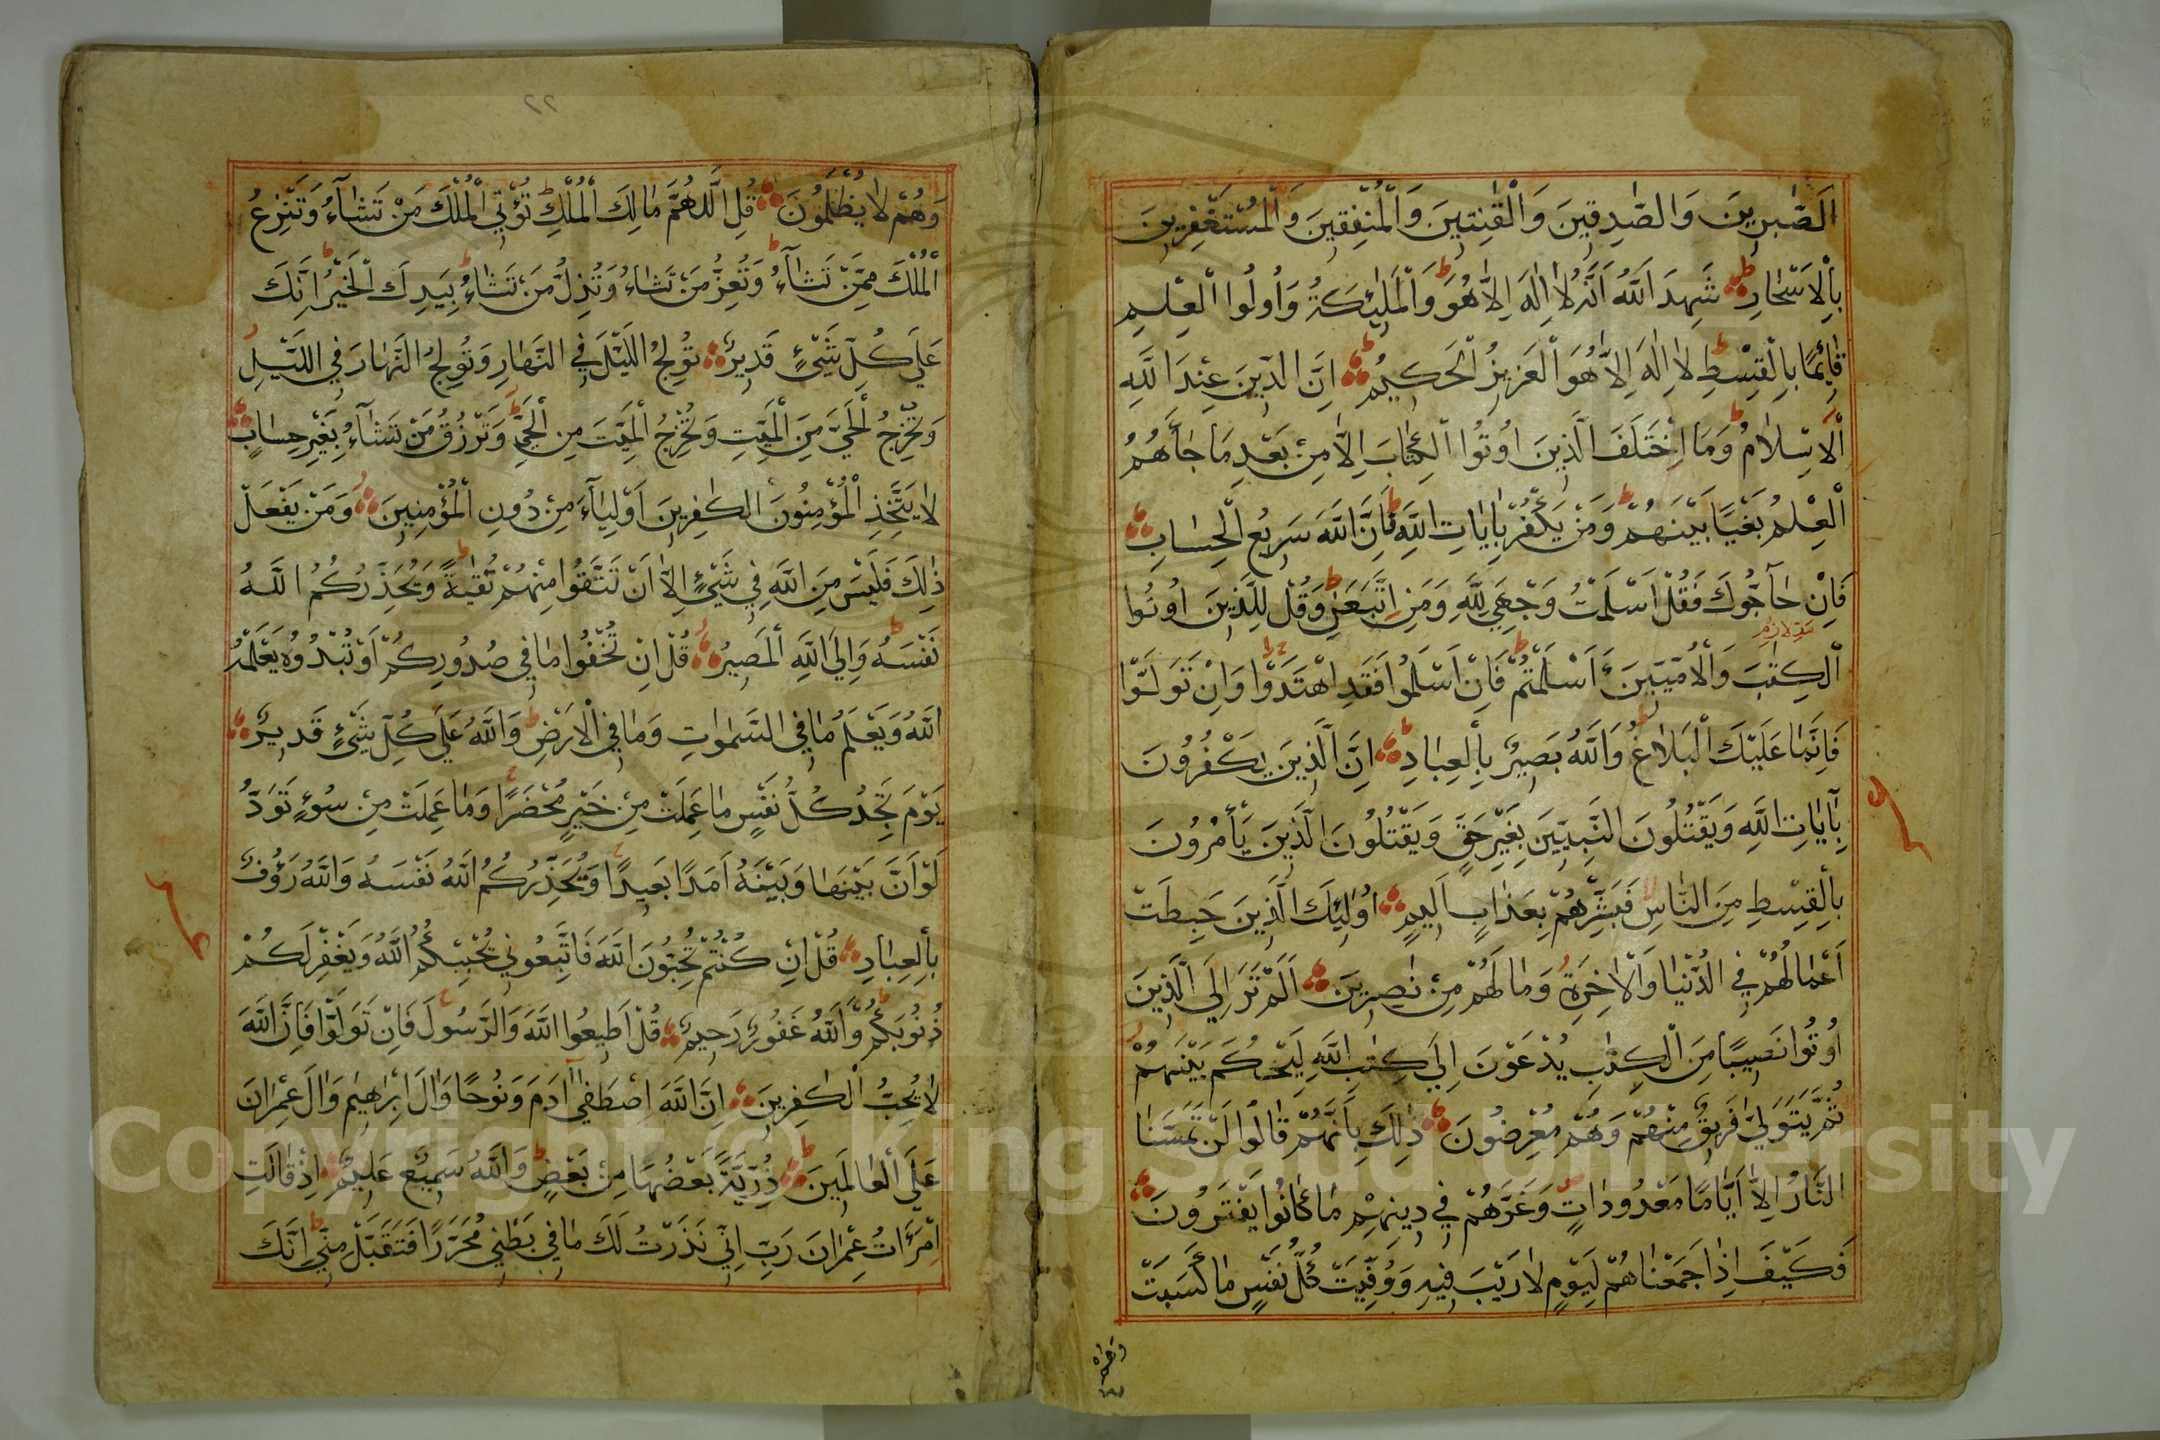 اَلصّٰبِرِينَ وَالصّٰدِقِينَ وَالْقٰنِتِينَ وَالْمُنْفِقِينَ وَالْمُسْتَغْفِرِينَ
بِالْاَسْحَارِ شَهِدَ اللّٰهُ اَنَّهُ لَا اِلٰهَ اِلَّا هُوَ وَالْمَلٰئِكَةُ وَاُولُوا الْعِلْمِ
قَائِمًا بِالْقِسْطِ لَا اِلٰهَ اِلَّا هُوَ الْعَزِيزُ الْحَكِيمُ اِنَّ الدِّينَ عِنْدَ اللّٰهِ
الْاِسْلَامُ وَمَا اخْتَلَفَ الَّذِينَ اُوتُوا الْكِتَابَ اِلَّا مِنْ بَعْدِ مَا جَاءَهُمُ
الْعِلْمُ بَغْيًا بَيْنَهُمْ وَمَنْ يَكْفُرْ بِاٰيَاتِ اللّٰهِ فَاِنَّ اللّٰهَ سَرِيعُ الْحِسَابِ
فَاِنْ حَاجُّوكَ فَقُلْ اَسْلَمْتُ وَجْهِيَ لِلّٰهِ وَمَنِ اتَّبَعَنِ وَقُلْ لِلَّذِينَ اُوتُوا
الْكِتٰبَ وَالْاُمِّيّٖنَ ءَاَسْلَمْتُمْ فَاِنْ اَسْلَمُوا فَقَدِ اهْتَدَوْا وَاِنْ تَوَلَّوْا
فَاِنَّمَا عَلَيْكَ الْبَلَاغُ وَاللّٰهُ بَصِيرٌ بِالْعِبَادِ اِنَّ الَّذِينَ يَكْفُرُونَ
بِاٰيَاتِ اللّٰهِ وَيَقْتُلُونَ النَّبِيّٖنَ بِغَيْرِ حَقٍّ وَيَقْتُلُونَ الَّذِينَ يَأْمُرُونَ
بِالْقِسْطِ مِنَ النَّاسِ فَبَشِّرْهُمْ بِعَذَابٍ اَلِيمٍ اُولٰئِكَ الَّذِينَ حَبِطَتْ
اَعْمَالُهُمْ فِي الدُّنْيَا وَالْاٰخِرَةِ وَمَا لَهُمْ مِنْ نٰصِرِينَ اَلَمْ تَرَ اِلَى الَّذِينَ
اُوتُوا نَصِيبًا مِنَ الْكِتٰبِ يُدْعَوْنَ اِلٰى كِتٰبِ اللّٰهِ لِيَحْكُمَ بَيْنَهُمْ
ثُمَّ يَتَوَلّٰى فَرِيقٌ مِنْهُمْ وَهُمْ مُعْرِضُونَ ذٰلِكَ بِاَنَّهُمْ قَالُوا لَنْ تَمَسَّنَا
النَّارُ اِلَّا اَيَّامًا مَعْدُودَاتٍ وَغَرَّهُمْ فِي دِينِهِمْ مَا كَانُوا يَفْتَرُونَ
فَكَيْفَ اِذَا جَمَعْنَاهُمْ لِيَوْمٍ لَا رَيْبَ فِيهِ وَوُفِّيَتْ كُلُّ نَفْسٍ مَا كَسَبَتْ
وَهُمْ
٢٢
وَهُمْ لَا يُظْلَمُونَ قُلِ اللّٰهُمَّ مَالِكَ الْمُلْكِ تُؤْتِي الْمُلْكَ مَنْ تَشَاءُ وَتَنْزِعُ
الْمُلْكَ مِمَّنْ تَشَاءُ وَتُعِزُّ مَنْ تَشَاءُ وَتُذِلُّ مَنْ تَشَاءُ بِيَدِكَ الْخَيْرُ اِنَّكَ
عَلٰى كُلِّ شَيْءٍ قَدِيرٌ تُولِجُ اللَّيْلَ فِي النَّهَارِ وَتُولِجُ النَّهَارَ فِي اللَّيْلِ
وَتُخْرِجُ الْحَيَّ مِنَ الْمَيِّتِ وَتُخْرِجُ الْمَيِّتَ مِنَ الْحَيِّ وَتَرْزُقُ مَنْ تَشَاءُ بِغَيْرِ حِسَابٍ
لَا يَتَّخِذِ الْمُؤْمِنُونَ الْكٰفِرِينَ اَوْلِيَاءَ مِنْ دُونِ الْمُؤْمِنِينَ وَمَنْ يَفْعَلْ
ذٰلِكَ فَلَيْسَ مِنَ اللّٰهِ فِي شَيْءٍ اِلَّا اَنْ تَتَّقُوا مِنْهُمْ تُقٰىةً وَيُحَذِّرُكُمُ اللّٰهُ
نَفْسَهُ وَاِلَى اللّٰهِ الْمَصِيرُ قُلْ اِنْ تُخْفُوا مَا فِي صُدُورِكُمْ اَوْ تُبْدُوهُ يَعْلَمْهُ
اللّٰهُ وَيَعْلَمُ مَا فِي السَّمٰوَاتِ وَمَا فِي الْاَرْضِ وَاللّٰهُ عَلٰى كُلِّ شَيْءٍ قَدِيرٌ
يَوْمَ تَجِدُ كُلُّ نَفْسٍ مَا عَمِلَتْ مِنْ خَيْرٍ مُحْضَرًا وَمَا عَمِلَتْ مِنْ سُوءٍ تَوَدُّ
لَوْ اَنَّ بَيْنَهَا وَبَيْنَهُ اَمَدًا بَعِيدًا وَيُحَذِّرُكُمُ اللّٰهُ نَفْسَهُ وَاللّٰهُ رَؤُفٌ
بِالْعِبَادِ قُلْ اِنْ كُنْتُمْ تُحِبُّونَ اللّٰهَ فَاتَّبِعُونِي يُحْبِبْكُمُ اللّٰهُ وَيَغْفِرْ لَكُمْ
ذُنُوبَكُمْ وَاللّٰهُ غَفُورٌ رَحِيمٌ قُلْ اَطِيعُوا اللّٰهَ وَالرَّسُولَ فَاِنْ تَوَلَّوْا فَاِنَّ اللّٰهَ
لَا يُحِبُّ الْكٰفِرِينَ اِنَّ اللّٰهَ اصْطَفٰى اٰدَمَ وَنُوحًا وَاٰلَ اِبْرٰهِيمَ وَاٰلَ عِمْرَانَ
عَلَى الْعَالَمِينَ ذُرِّيَّةً بَعْضُهَا مِنْ بَعْضٍ وَاللّٰهُ سَمِيعٌ عَلِيمٌ اِذْ قَالَتِ
امْرَاَتُ عِمْرَانَ رَبِّ اِنِّي نَذَرْتُ لَكَ مَا فِي بَطْنِي مُحَرَّرًا فَتَقَبَّلْ مِنِّي اِنَّكَ
Copyright © King Saud University